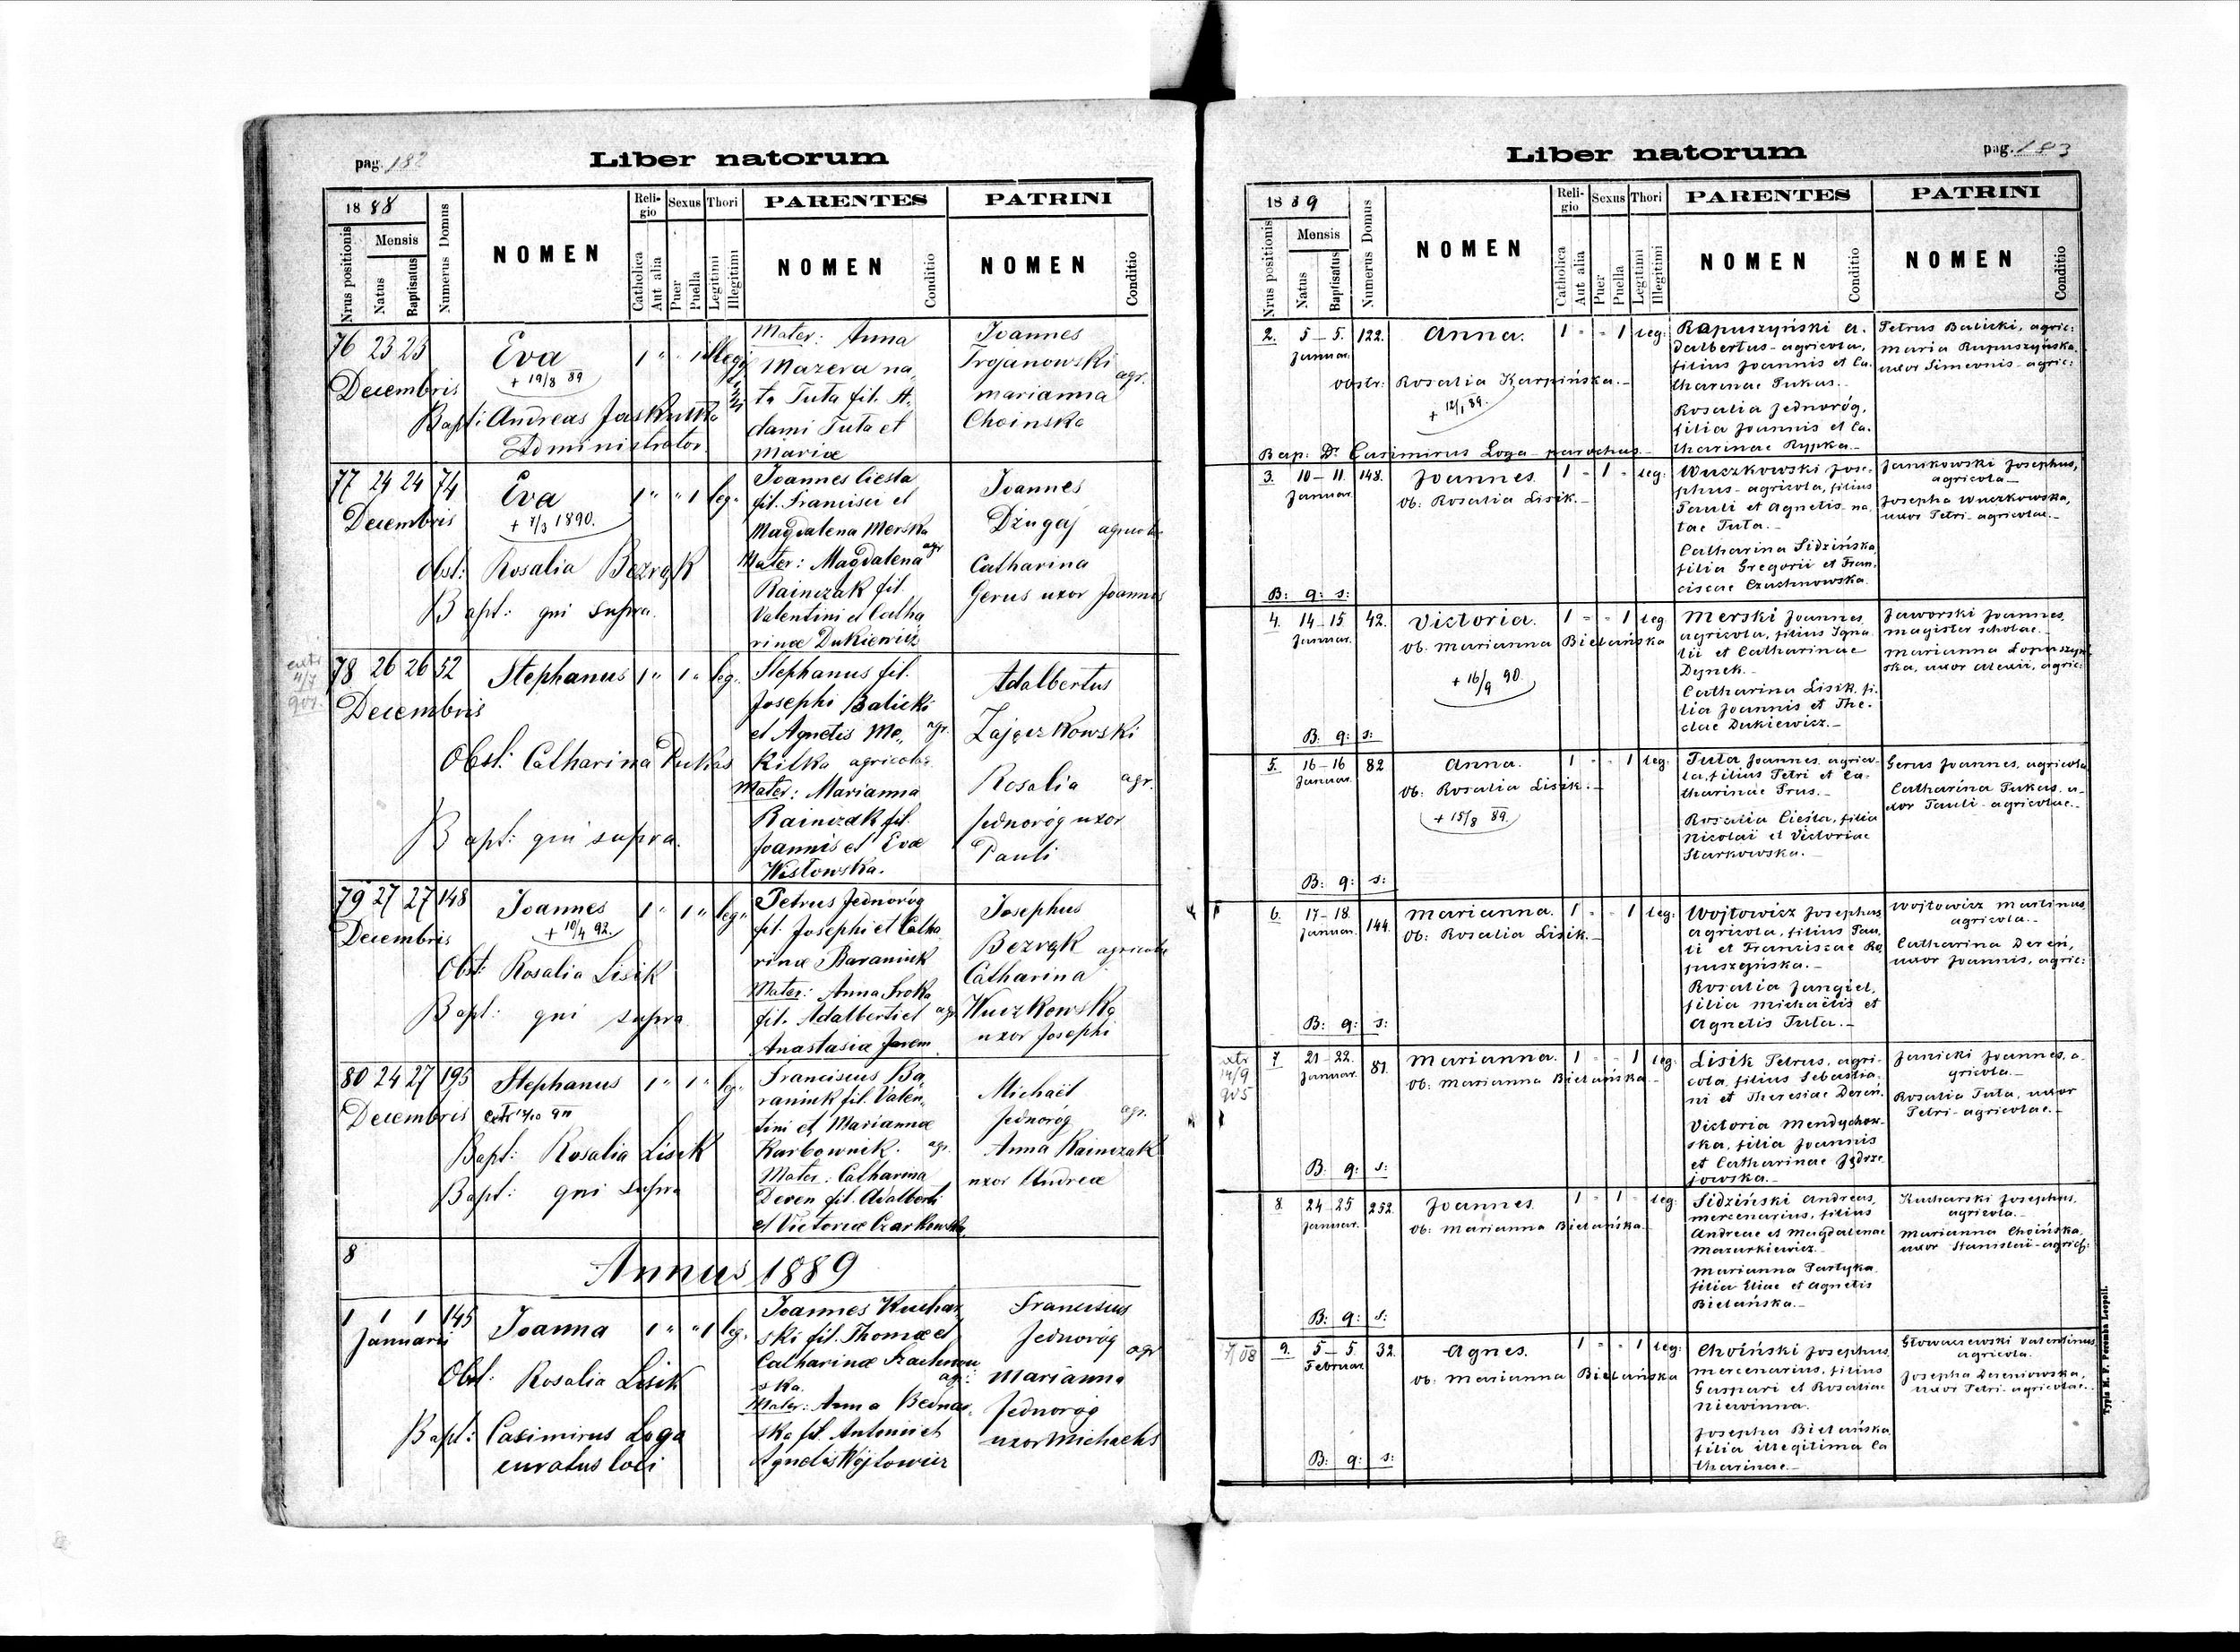 pag. 182
Liber natorum
1888
Nrus positionis
Mensis
Natus
Baptisatus
Numerus Domus
NOMEN
Religio
Catholica
Aut alia
Sexus
Puer
Puella
Thori
Legitimi
Illegitimi
PARENTES
NOMEN
Conditio
PATRINI
NOMEN
Conditio
76 23 23
Decembris
Eva
+ 19/8 89
1 " " 1 illegi
Bapt: Andreas Jaskułka
Administrator
Mater: Anna
Mazera na
ta Tuta fil. A
dami Tuta et
Mariæ
Joannes
Trojanowski
agr.
Marianna
Choinska
77 24 24 74
Decembris
Eva
+ 7/3 1890.
1 " " 1 leg.
Obst: Rosalia Bezrąk
Bapt: qui supra.
Joannes Ciesta
fil. Francisci et
Magdalena Merska
agr
Mater: Magdalena
Rainczak fil.
Valentini et Catha
rinæ Dukiewicz
Joannes
Dzugaj agricola
Catharina
Gerus uxor Joannis
78 26 26 52
Decembris
Stephanus 1 " 1 " leg.
Obst: Catharina Pukas
Bapt: qui supra.
Stephanus fil.
Josephi Balicki
et Agnetis Mo„ agr.
kilka agricola
Mater: Marianna
Rainczak fil.
Joannis et Evæ
Wisłowska.
Adalbertus
Zajączkowski
Rosalia agr.
Jednoróg uxor
Pauli
79 27 27 148
Decembris
Joannes
+ 10/4 92.
1 " 1 " leg„
Obst: Rosalia Lisik
Bapt: qui supra
Petrus Jednoróg
fil. Josephi et Catha
rinæ Baraniuk
Mater: Anna Sroka
fil. Adalberti et agr
Anastasiæ Jarem
Josephus
Bezrąk agricola
Catharina
Wuczkowska
uxor Josephi
80 24 27 195
Decembris
Stephanus 1 " 1 " leg„
Bapt: Rosalia Lisik
Bapt: qui supra
Franciscus Ba
raniuk fil. Valen„
tini et Mariannæ
Karbownik. agr.
Mater: Catharina
Deren fil. Adalberti
et Victoriæ Czarkowska
Michaël
Jednoróg agr.
Anna Rainczak
uxor Andreæ
8
Annus 1889
1 1 1 145
Januarii
Joanna 1 " " 1 leg.
Obst: Rosalia Lisik
Bapt: Casimirus Loga
curatus loci
Joannes Kuchar
ski fil. Thomæ et
Catharinæ Szachnow
ska. agr.
Mater: Anna Bednar
ska fil. Antonii et
Agnetis Wójtowicz
Franciscus
Jednoróg agr
Marianna
Jednoróg
uxor Michaelis
Liber natorum
pag. 183
1889
Nrus positionis
Mensis
Natus
Baptisatus
Numerus Domus
NOMEN
Religio
Catholica
Aut alia
Sexus
Puer
Puella
Thori
Legitimi
Illegitimi
PARENTES
NOMEN
Conditio
PATRINI
NOMEN
Conditio
2. 5 – 5. 122. Anna. 1 - - 1 leg:
Januar.
obstr: Rosalia Karpińska.–
+ 12/1 89.
Bap: Dr Casimirus Loga – parochus.–
Rapuszyński A.
dalbertus – agricola,
filius Joannis et Ca.
tharinae Pukas.–
Rosalia Jednoróg,
filia Joannis et Ca.
tharinae Rypka.–
Petrus Balicki, agric:
Maria Rapuszyńska,
uxor Simeonis – agric:
3. 10 – 11. 148. Joannes. 1 - 1 - leg:
Januar.
Ob: Rosalia Lisik.–
B: q: s:
Wuczkowski Jose„
phus – agricola, filius
Pauli et Agnetis – na.
tae Tuta.–
Catharina Sidzińska
filia Gregorii et Fran.
ciscae Czuchnowska.
Janikowski Josephus,
agricola –
Josepha Wuczkowska,
uxor Petri – agricolae.–
4. 14 – 15 42. Victoria. 1 - - 1 leg
Januar.
Ob: Marianna Bielańska
+ 16/9 90.
B: q: s:
Merski Joannes
agricola, filius Igna
tii et Catharinae
Dynek.–
Catharina Lisik, fi.
lia Joannis et The.
clae Dukiewicz.–
Jaworski Joannes,
magister scholae.–
Marianna Łopuszyń
ska, uxor Alexii, agric:
5. 16 – 16 82 Anna. 1 - - 1 leg:
Januar.
Ob: Rosalia Lisik.–
+ 15/8 89.
B: q: s:
Tuta Joannes, agrico.
la, filius Petri et Ca.
tharinae Prus.–
Rosalia Cieśta, filia
Nicolai et Victoriae
Starkowska.–
Gerus Joannes, agricola
Catharina Pukas, u.
xor Pauli – agricolae.–
6. 17 – 18. 144. Marianna. 1 - - 1 leg:
Januar.
Ob: Rosalia Lisik.–
B: q: s:
Wojtowicz Josephus
agricola, filius Pau.
li et Franciscae Ra
puszyńska.–
Rosalia Jangiel,
filia Michaëlis et
Agnetis Tuta.–
Wojtowicz Martinus
agricola.–
Catharina Dereń,
uxor Joannis, agric:
7 21 – 22. 81. Marianna. 1 - - 1 leg:
Januar.
Ob: Marianna Bielańska –
B: q: s:
Lisik Petrus, agri.
cola, filius Sebastia.
ni et Theresiae Dereń.
Victoria Mendychow.
ska, filia Joannis
et Catharinae Jędrze
jowska.–
Janicki Joannes, a.
gricola.–
Rosalia Tuta, uxor
Petri – agricolae.–
8. 24 – 25 252. Joannes. 1 - 1 - leg:
Januar.
Ob: Marianna Bielańska –
B: q: s:
Sidziński Andreas,
mercenarius, filius
Andreae et Magdalenae
Mazurkiewicz.
Marianna Partyka,
filia Eliae et Agnetis
Bielańska.–
Kucharski Josephus,
agricola.–
Marianna Choińska,
uxor Stanislai – agric:
9. 5 – 5. 32. Agnes. 1 - - 1 leg:
Februar.
Ob: Marianna Bielańska
B: q: s:
Choiński Josephus,
mercenarius, filius
Gaspari et Rosaliae
Niewinna.
Josepha Bielańska,
filia illegitima Ca
tharinae.–
Głowaczewski Valentinus
agricola.
Josepha Dereniowska,
uxor Petri – agricolae.–
Typis M. F. Poremba Leopoli.